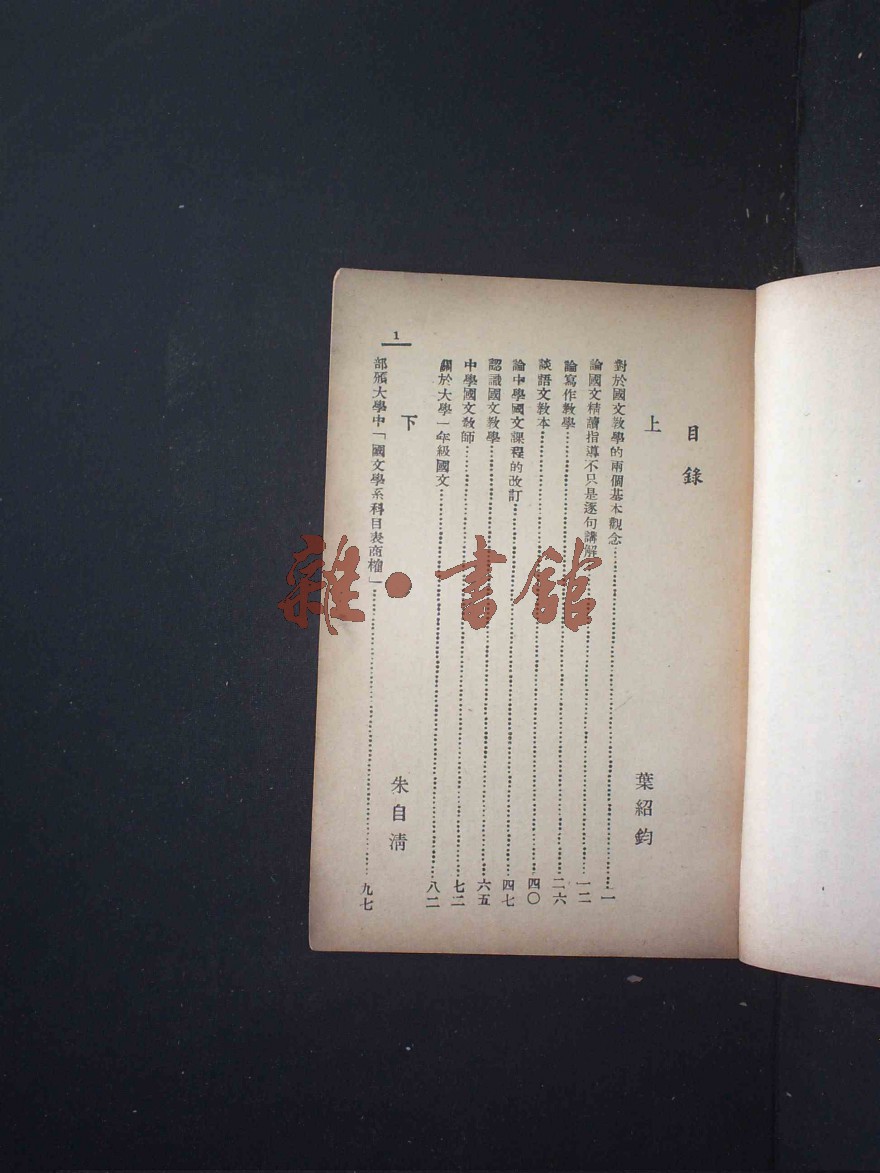 目錄
上 葉紹鈞
對於國文教學的兩個基本觀念……一
論國文精讀指導不只是逐句講解……一二
論寫作教學……二六
談語文教本……四〇
論中學國文課程的改訂……四七
認識國文教學……六五
中學國文教師……七二
關於大學一年級國文……八二
下 朱自清
部頒大學中「國文學系科目表商榷」……九七
1
雜·書館